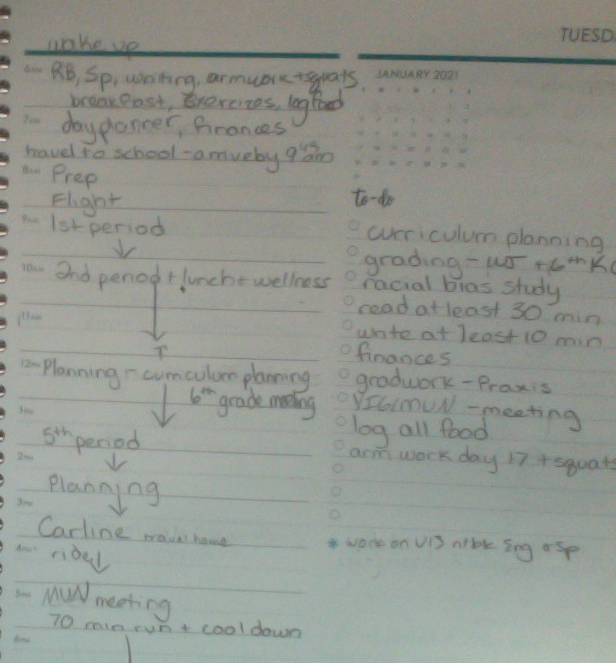 TUESD
wake up
JANUARY 2021
6am RB, Sp, writing, armwork + squats
breakfast, Exercizes, log food
7am day planner, finances
travel to school - arrive by 9:45am
8am Prep
Flight
9am 1st period
10am 2nd period + lunch + wellness
11am
12pm Planning - curriculum planning
6th grade meeting
1pm
5th period
2pm
Planning
3pm
Carline travel home
4pm ride
5pm MUN meeting
70 min run + cool down
6pm
to-do
curriculum planning
grading - WJ + 6th
racial bias study
read at least 30 min
write at least 10 min
finances
gradwork - Praxis
meeting
log all food
arm work day 17 + squats
* work on V13 ntbk Eng + Sp